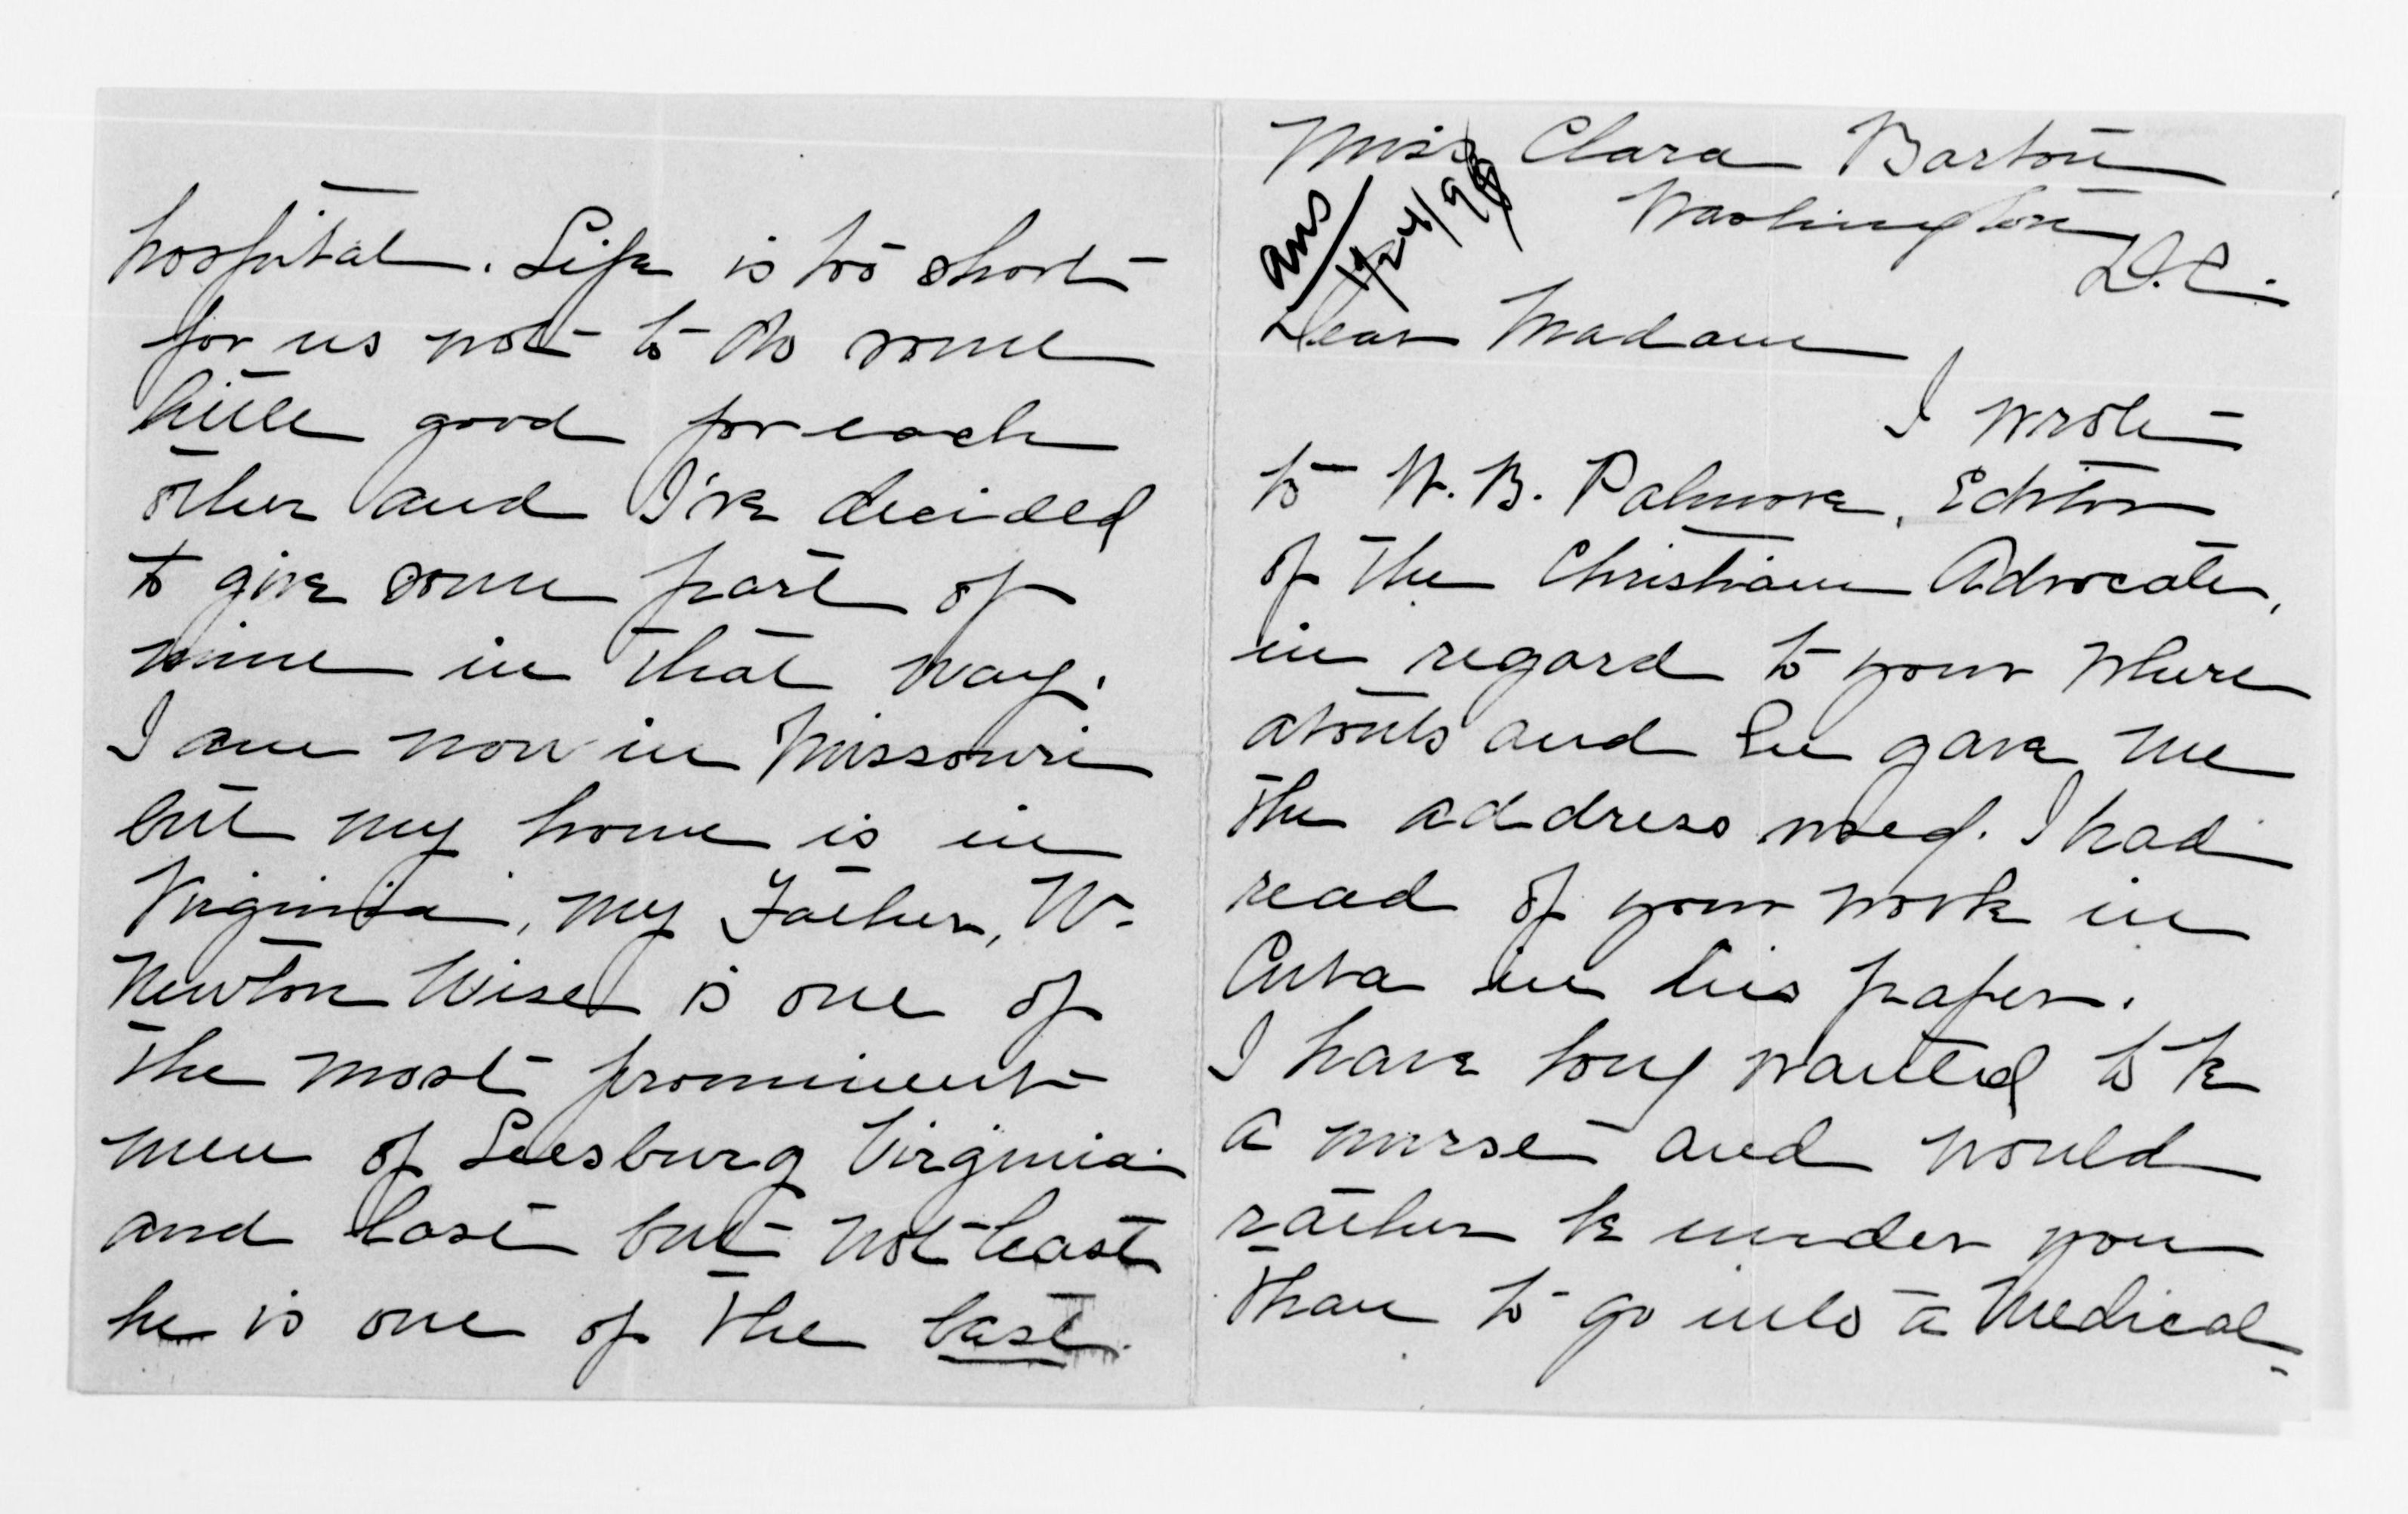 Miss Clara Barton
Washington
D.C.
ans
Dear Madam
I wrote
to W. B. Palmore, Editor
of the Christian Advocate,
in regard to your where
abouts and he gave me
the address used. I had
read of your work in
Cuba in his paper.
I have long wanted to be
a nurse and would
rather be under you
than to go into a Medical
hospital. Life is too short
for us not to do some
little good for each
other and I've decided
to give some part of
mine in that way.
I am now in Missouri
but my home is in
Virginia, my Father, W.
Newton Wise is one of
the most prominent
men of Leesburg Virginia
and last but not least
he is one of the best.